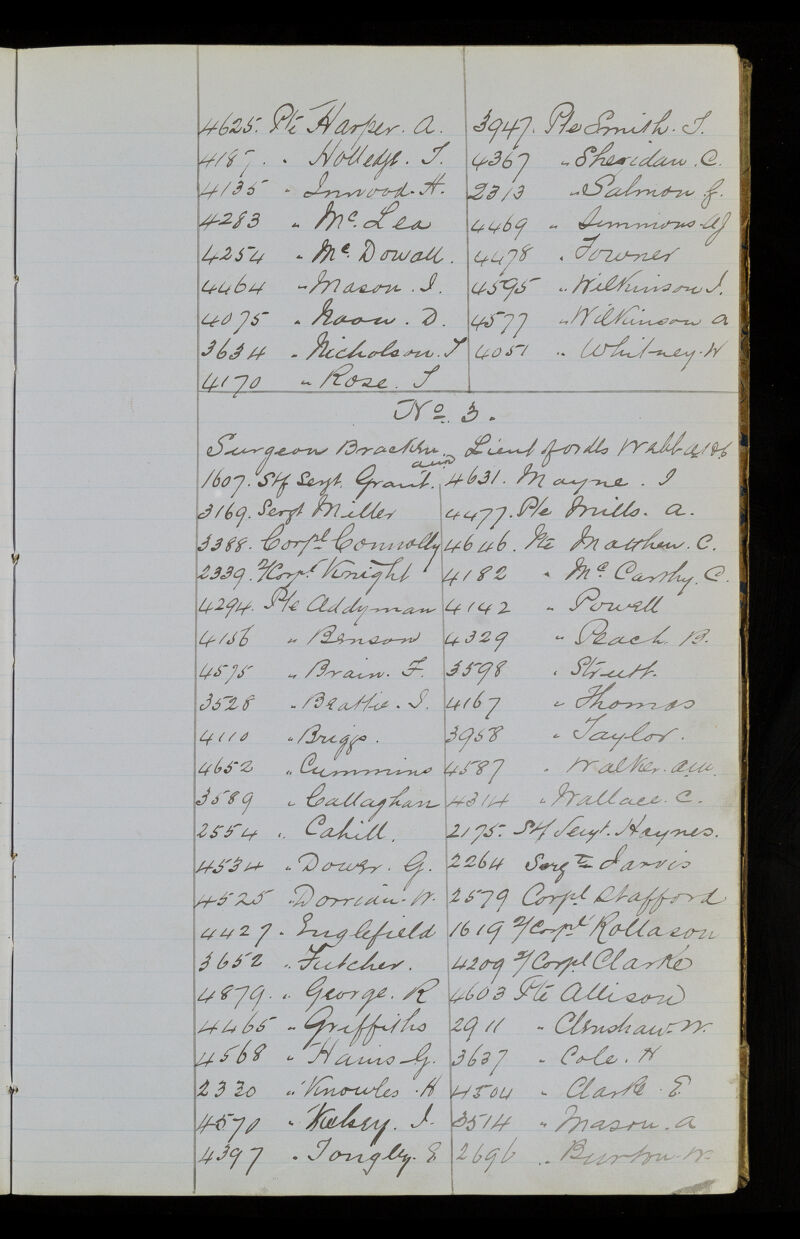 4625. Pte Harper. A.
4187. " Holledge. T.
4135 " Inwood. H.
4283 " Mc. Lea
4254 " Mc. Dowall.
4464 " Mason. I.
4075 " Noon. D.
3634 " Nicholson. T
4170 " Rose. T
3947. Pte Smith. T.
4367 " Sheridan. C.
2313 " Salmon G.
4469 " Simmons AJ
4478 " Towner
4595 " Wilkinson I.
4577 " Wilkinson A
4051 " Whitney. W
No. 3.
Surgeon Bracken. Lieut of ordls Webb
1607. Stf Sergt. Grant.
3169. Sergt Miller
3388. Corpl. Connolly
2339. 2/Corpl. Knight
4294. Pte Addyman
4156 " Benson
4575 " Brain. F.
3528 " Beattie. I.
4110 " Briggs.
4652 " Cummins
3589 " Callaghan
2554 " Cahill.
4534 " Dower. G.
4525 " Dorrian. W.
4427 " Englefield
3652 " Futcher.
4879. " George. R
4465 " Griffiths
4568 " Hains. G.
2330 " Knowles. H
4570 " Kelsey. I.
4397 " Tongley. E
4631. Mayne. I
4477. Pte Mills. A.
4646. Pte Matthew. C.
4182 " Mc. Carthy. C.
4142 " Powell
4329 " Peach B.
3598 " Strutt.
4167 " Thomas
3958 " Taylor.
4587 " Walker. AW.
4314 " Wallace. C.
2175. Stf Sergt. Haynes.
2264 Sergt Jarvis
2579 Corpl Stafford
1619 2/Corpl Rollason
4209 2/Corpl Clarke
4603 Pte Allison
2911 " Clenshaw. W.
3637 " Cole. H
4504 " Clarke. E
3514 " Mason. A
2696 " Burton. W.